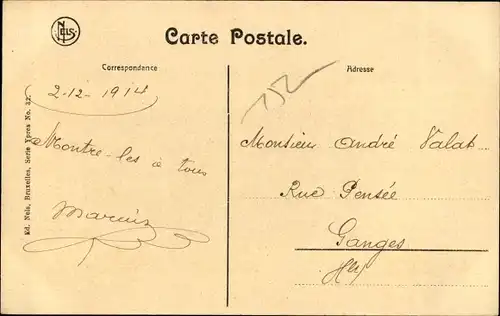 Nels
Carte Postale.
Correspondance
Adresse
2-12-1914
Montre-les à tous
Marius
Monsieur André Valat
Rue Pensée
Ganges
Hlt
Ed. Nels, Bruxelles, Serie Ypres No. 32.